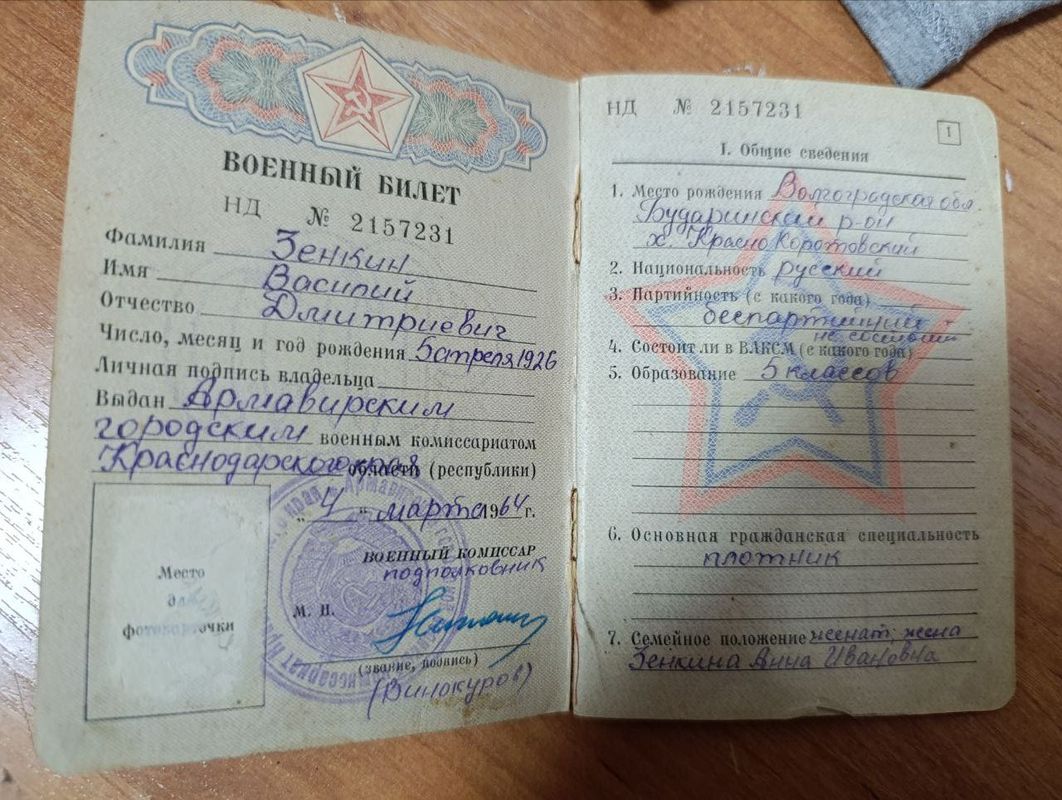 ВОЕННЫЙ БИЛЕТ
НД № 2157231
Фамилия Зенкин
Имя Василий
Отчество Дмитриевич
Число, месяц и год рождения 5 апреля 1926
Личная подпись владельца
Выдан Армавирским
городским военным комиссариатом
Краснодарского края области (республики)
„4“ марта 1964 г.
ВОЕННЫЙ КОМИССАР
подполковник
М. П.
(звание, подпись)
(Винокуров)
Место
для
фотокарточки
НД № 2157231
1
I. Общие сведения
1. Место рождения Волгоградская обл.
Бударинский р-он
х. Красно Коротовский
2. Национальность русский
3. Партийность (с какого года)
беспартийный
не состоит
4. Состоит ли в ВЛКСМ (с какого года)
5. Образование 5 классов
6. Основная гражданская специальность
плотник
7. Семейное положение женат, жена
Зенкина Анна Ивановна